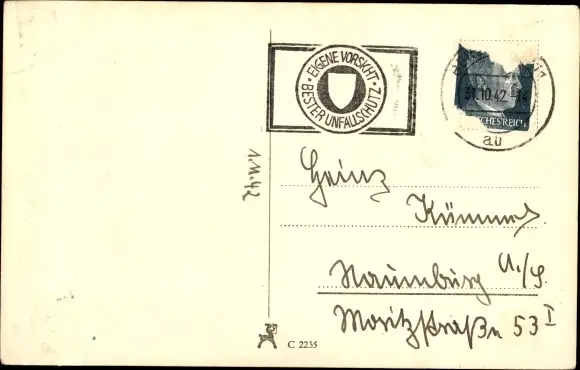 EIGENE VORSICHT
BESTER UNFALLSCHUTZ
31.10.42.-14
au
1.11.42
Heinz
Kümmel
Naumburg a./S.
Moritzstraße 53 I
C 2235